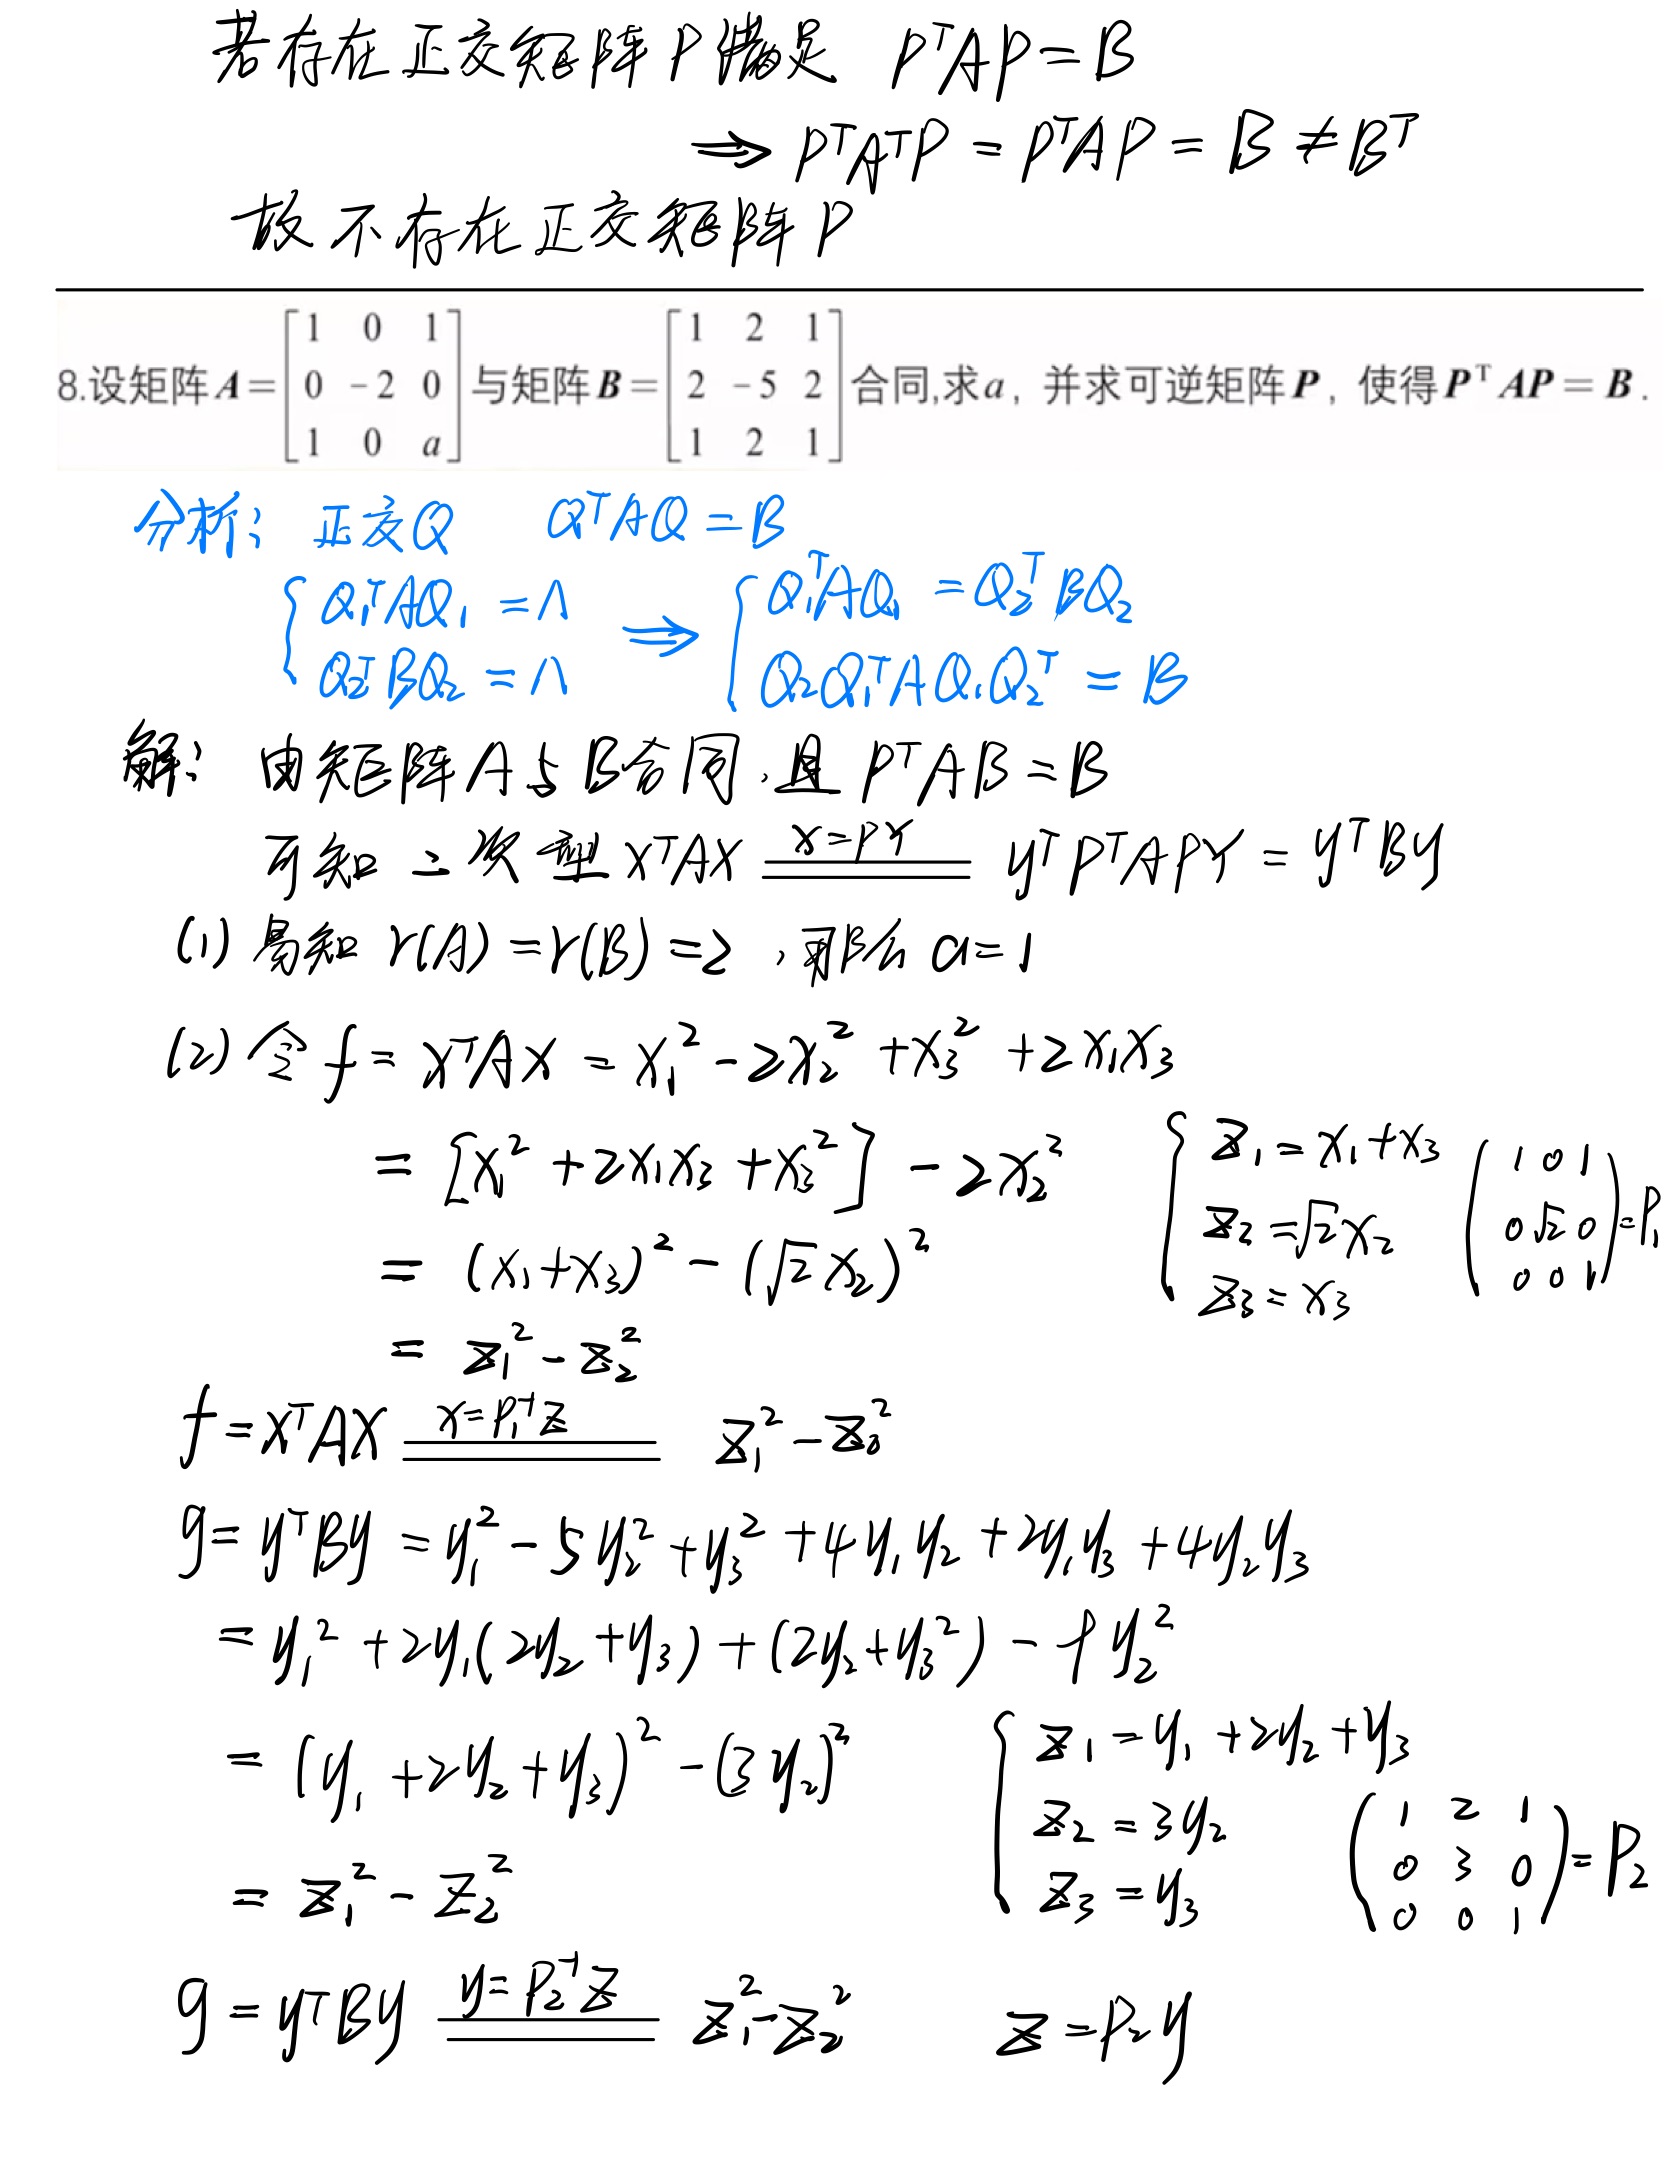 若存在正交矩阵P满足 PᵀAP=B
⇒ PᵀAᵀP = PᵀAP = B ≠ Bᵀ
故不存在正交矩阵P
8.设矩阵A=[1 0 1; 0 -2 0; 1 0 a]与矩阵B=[1 2 1; 2 -5 2; 1 2 1]合同,求a, 并求可逆矩阵P, 使得PᵀAP=B.
分析: 正交Q QᵀAQ=B
{ Q₁ᵀAQ₁=Λ ⇒ { Q₁ᵀAQ₁=Q₂ᵀBQ₂
Q₂ᵀBQ₂=Λ Q₂Q₁ᵀAQ₁Q₂ᵀ=B
解: 由矩阵A与B合同,且 PᵀAB=B
可知二次型XᵀAX x=PY yᵀPᵀAPY = yᵀBy
(1) 易知 r(A)=r(B)=2 ,那么 a=1
(2) 令 f = XᵀAX = x₁²-2x₂²+x₃²+2x₁x₃
= [x₁²+2x₁x₃+x₃²]-2x₂² { z₁=x₁+x₃ (1 0 1
= (x₁+x₃)²-(√2x₂)² z₂=√2x₂ 0 √2 0)=P₁
= z₁²-z₂² z₃=x₃ 0 0 1
f=XᵀAX x=P₁⁻¹z z₁²-z₂²
g=yᵀBy = y₁²-5y₂²+y₃²+4y₁y₂+2y₁y₃+4y₂y₃
= y₁²+2y₁(2y₂+y₃)+(2y₂+y₃²)-9y₂²
= (y₁+2y₂+y₃)²-(3y₂)² { z₁=y₁+2y₂+y₃
z₂=3y₂ (1 2 1
= z₁²-z₂² z₃=y₃ 0 3 0)=P₂
0 0 1
g=yᵀBy y=P₂⁻¹z z₁²-z₂² z=P₂y